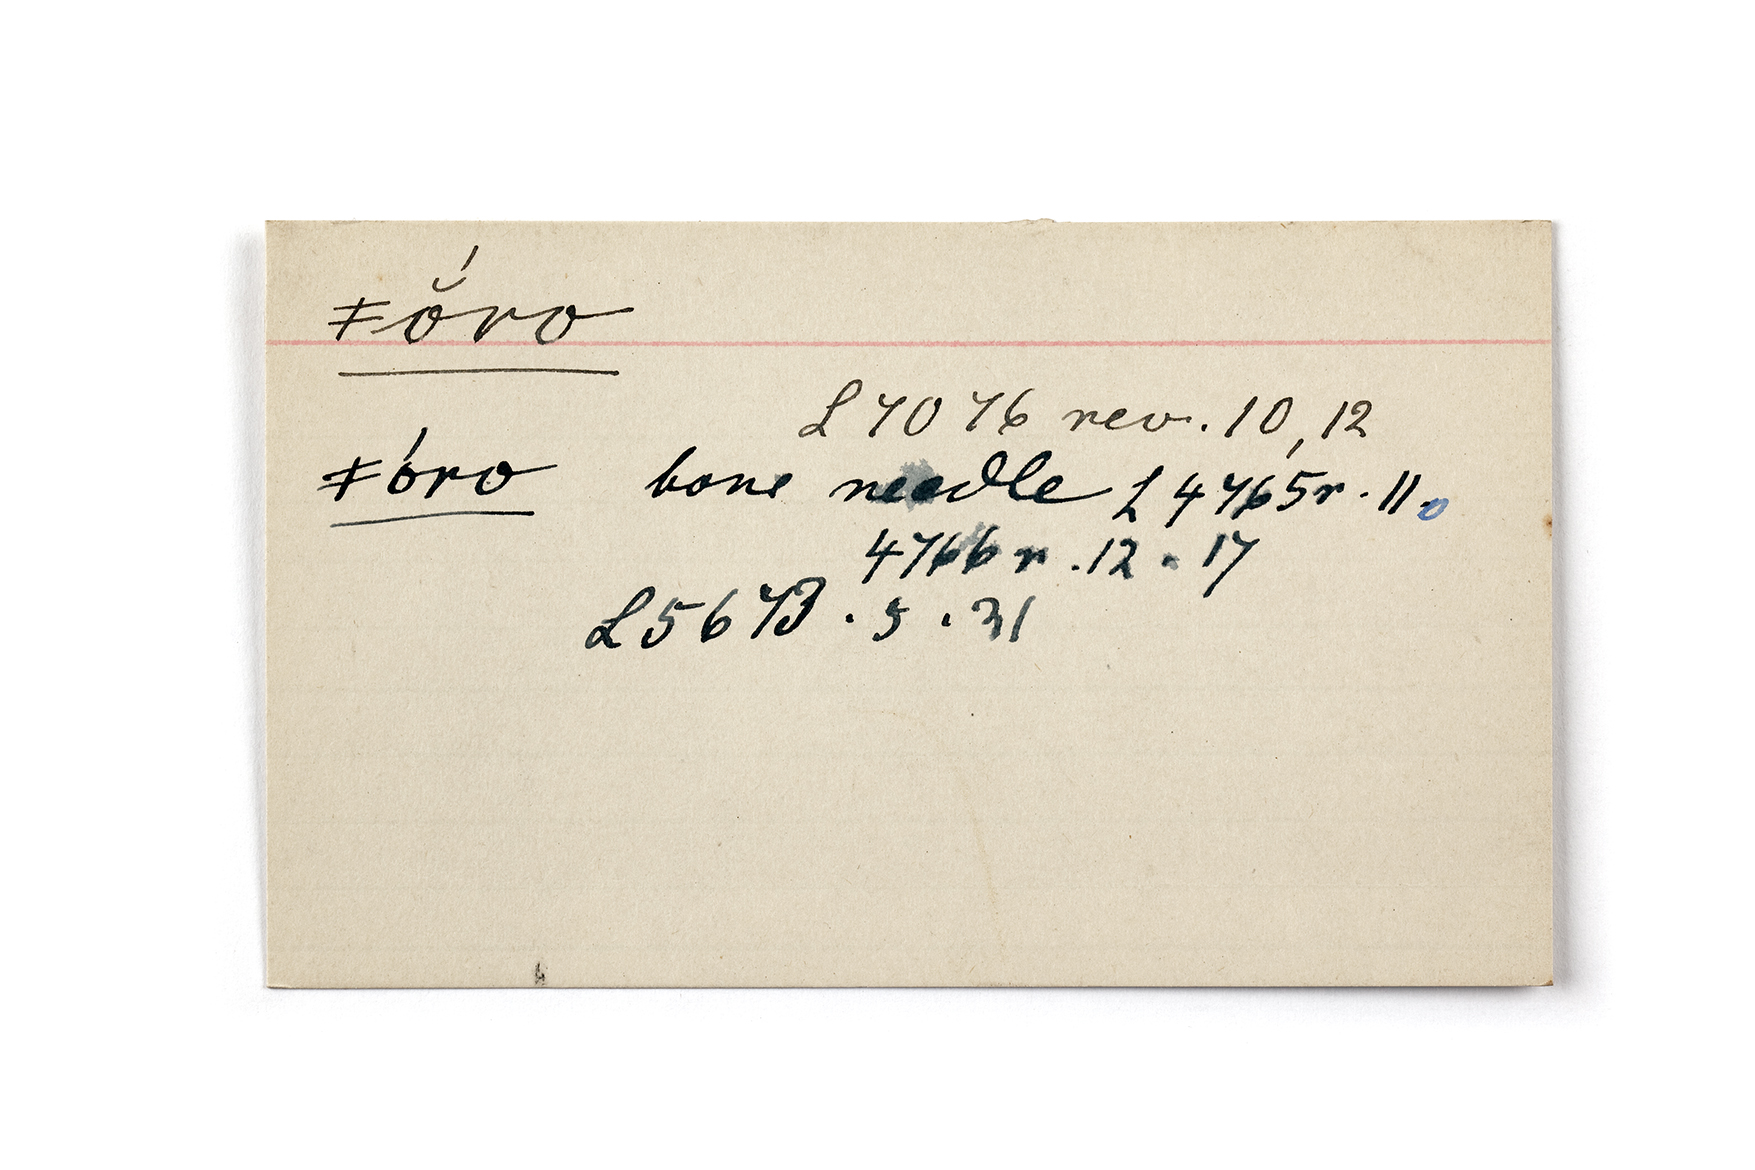 ǂŏ́ro
L 7076 rev. 10, 12
ǂóro bone needle L 4765 r. 11.
4766 r. 12. 17
L 5673. 5. 31